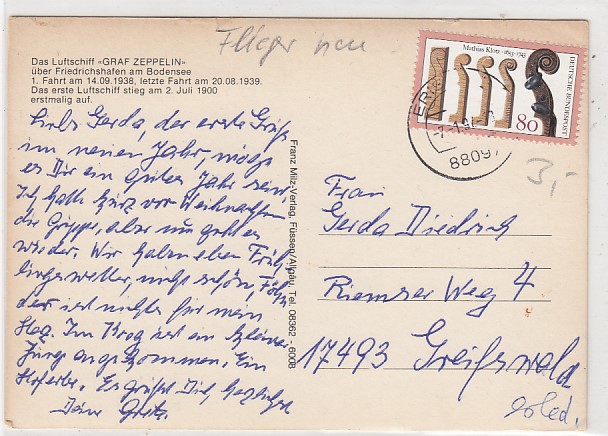 Flieger neu
Das Luftschiff »GRAF ZEPPELIN«
über Friedrichshafen am Bodensee
1. Fahrt am 14.09.1938, letzte Fahrt am 20.08.1939.
Das erste Luftschiff stieg am 2. Juli 1900
erstmalig auf.
Liebe Gerda, der erste Gruß
im neuen Jahr, möge
es Dir ein gutes Jahr sein
Ich hatte kurz vor Weihnachten
die Grippe, aber nun geht es
wieder. Wir haben eben Früh-
lingswetter, nicht schön, Föhn
der ist nichts für mein
Herz. Im Krog ist ein kleiner
Junge angekommen. Ein
Hoferbe. Es grüßt Dich herzlichst
Deine Grete
Franz Milz-Verlag, Füssen/Allgäu, Tel. 08362 - 6008
Mathias Klotz · 1653-1743
DEUTSCHE BUNDESPOST
80
88097
3,-
Frau
Gerda Diedrich
Riemser Weg 4
17493 Greifswald